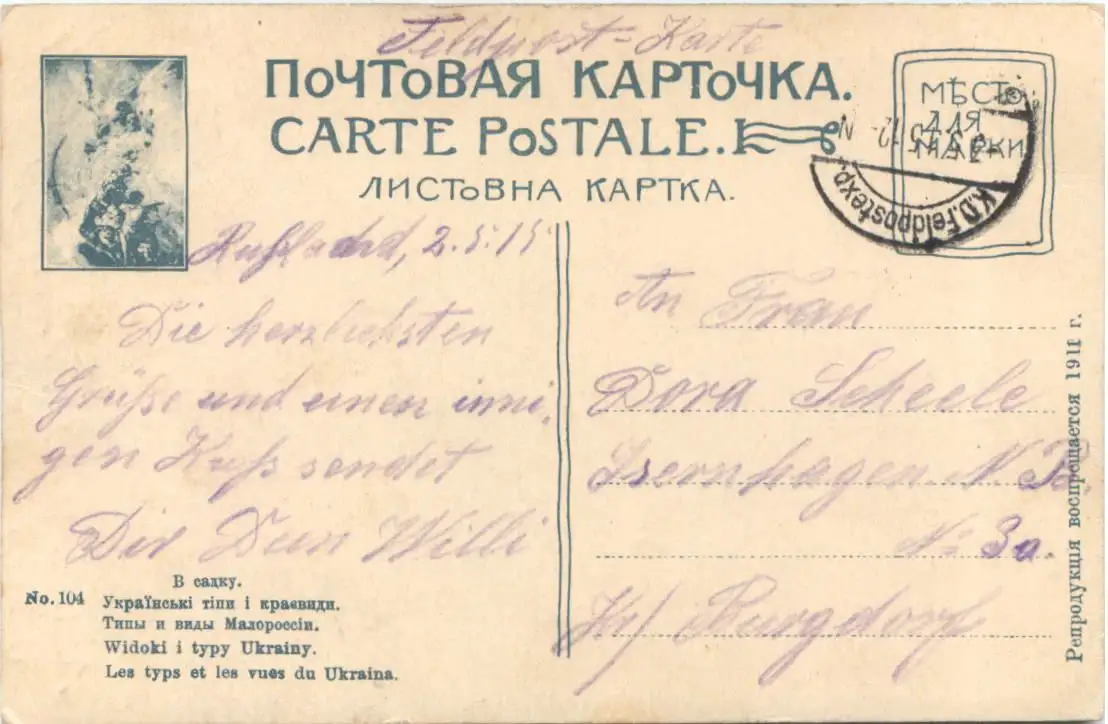 Feldpost-Karte
ПОЧТОВАЯ КАРТОЧКА.
CARTE POSTALE.
ЛИСТОВНА КАРТКА.
МѢСТО
ДЛЯ
МАРКИ
K.D.Feldpostexp.
Rußland, 2.5.15
Die herzlichsten
Grüße und einen inni-
gen Kuß sendet
Dir Dein Willi
An Frau
Dora Scheele
Isernhagen N. B.
No 3a.
Kr/ Burgdorf
В садку.
No. 104 Українські тіпи і краєвиди.
Типы и виды Малороссіи.
Widoki i typy Ukrainy.
Les typs et les vues du Ukraina.
Репродукція воспрещается 1911 г.